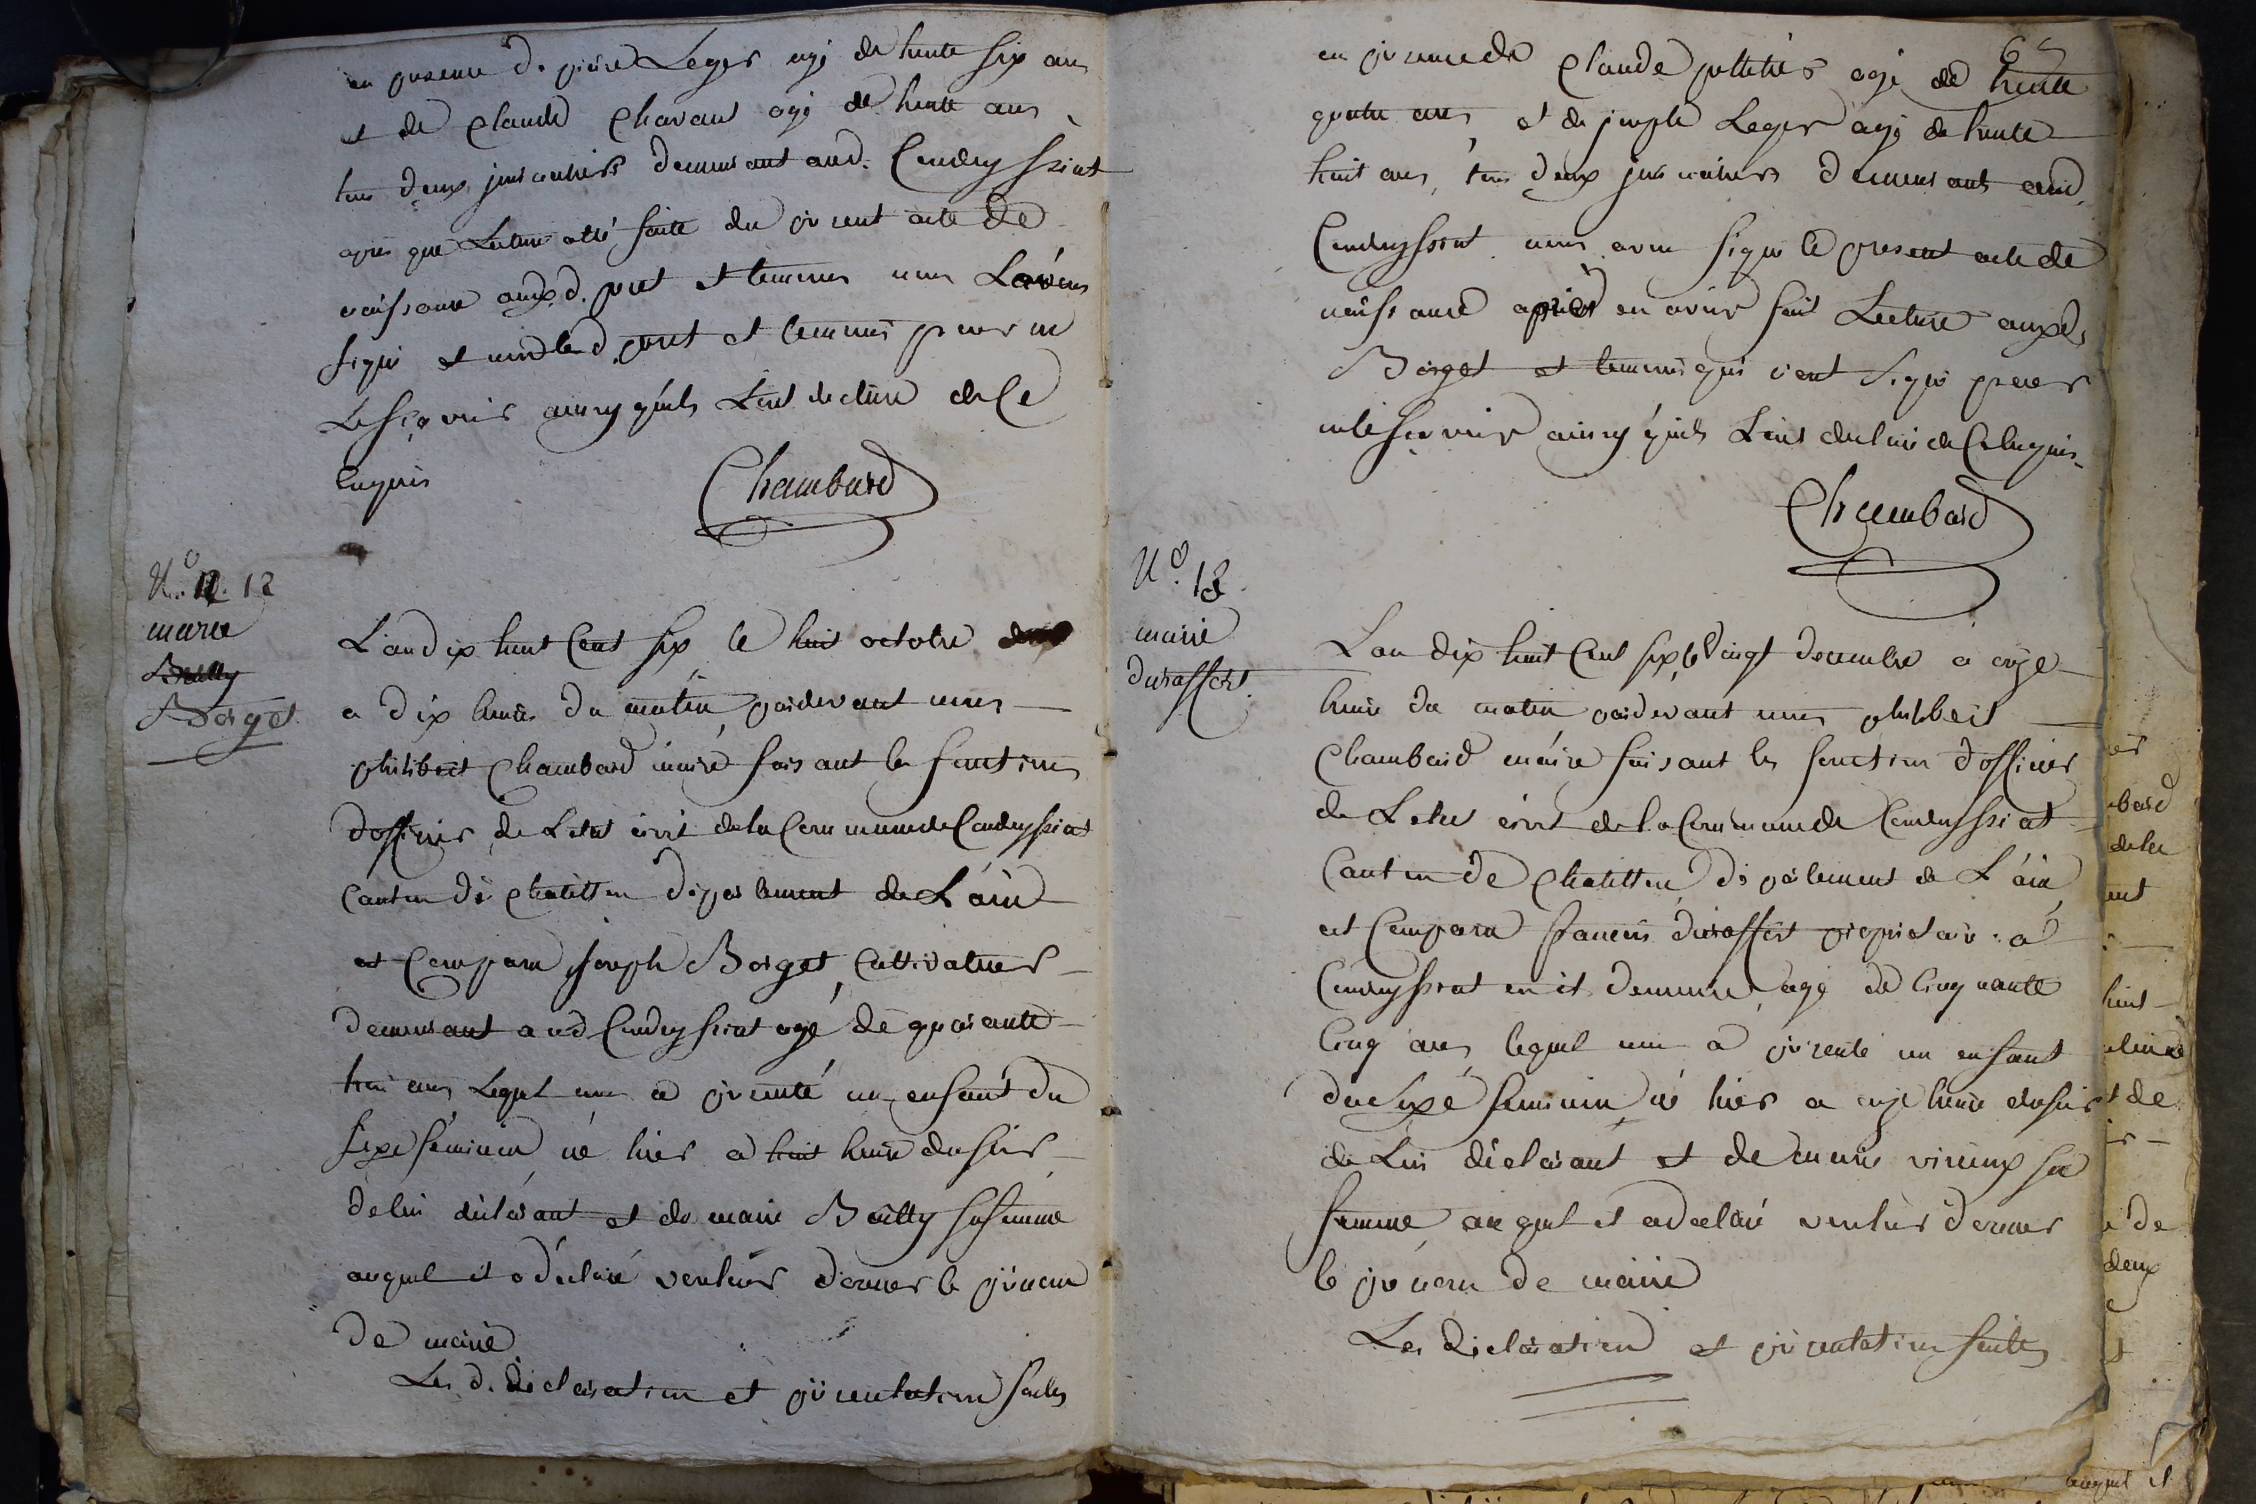 en presence de pierre Leger agé de trente six ans
et de Claude Chavant agé de trente ans
tous deux journaliers demeurant aud. Condeyssiat
après que Lecture a été faite du present acte de
naissance auxd. pere et temoins nous L'avons
signé et non led. pere et temoins pour ne
le sçavoir ainsy qu'ils L'ont declaré de Ce
Enquis
Chambard
N.º 12
marie
Borget
L'an dix huit Cent six le huit octobre
a dix heures du matin pardevant nous
philibert Chambard maire faisant les fonctions
d'officier de L'etat civil de la Commune de Condeyssiat
Canton de Chatillon departement de L'ain
est Comparu joseph Borget Cultivateur
demeurant aud Condeyssiat agé de quarante
trois ans Lequel nous a presenté un enfant du
sexe féminin né hier a huit heures du soir
de lui déclarant et de marie Bailly sa femme
auquel il a déclaré vouloir donner le prenom
de marie
Les d. declaration et presentation faites
65
en presence de Claude agé de trente
quatre ans et de joseph Leger agé de trente
huit ans, tous deux journaliers demeurants aud.
Condeyssiat nous avons signé le present acte de
naissance après en avoir fait Lecture auxds
Borget et temoins qui n'ont signé pour
ne le sçavoir ainsy qu'ils L'ont declaré de Ce Enquis
Chambard
N.º 13.
marie
duraffort.
L'an dix huit Cent six le Vingt decembre a onze
heures du matin pardevant nous philibert
Chambard maire faisant les fonction d'officier
de L'etat civil de la Commune de Condeyssiat
Canton de Chatillon departement de L'ain
est Comparu francois duraffort proprietaire a
Condeyssiat en it demeurer agé de Cinquante
Cinq ans lequel nous a presenté un enfant
du Sexe feminin né hier a onze heures du soir
de Lui déclarant et de marie vieux sa
femme auquel il a declaré vouloir donner
le prenom de marie
Les declaration et presentation faites